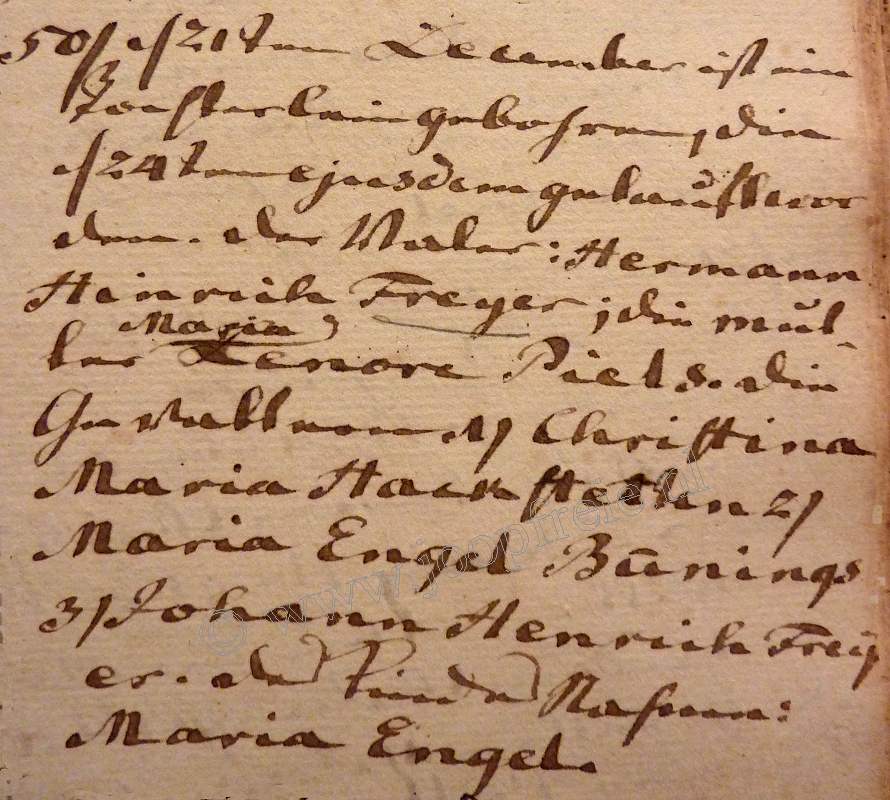 50/ d/21ten December ist ein
Töchterlein gebohren, die
d/24ten ejusdem getauft wor
den. der Vater: Hermann
Heinrich Freyer; die Mut
Maria
ter Lenore Piels. die
Gevattern 1) Christina
Maria Hackstetten 2)
Maria Engel Bünings
3) Johann Henrich Frey
er. des Kindes Nahmen:
Maria Engel.
© www.joopfreie.nl